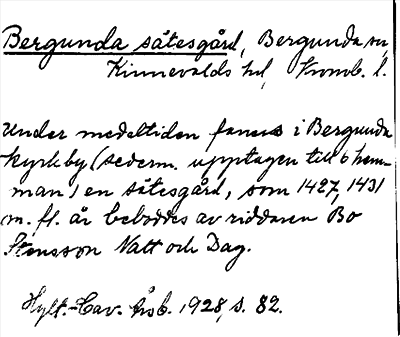 Bergunda sätesgård, Bergunda sn,
Kinnevalds hd, Kronob. l.
Under medeltiden fanns i Bergunda
kyrkby (sederm. upptagen till 6 hem-
man) en sätesgård, som 1427, 1431
m. fl. år beboddes av riddaren Bo
Stensson Natt och Dag.
Hylt.-Cav. årsb. 1928, s. 82.